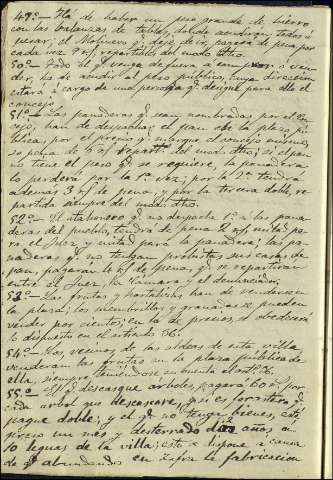 49º.- Ha de haber un peso grande de hierro
con las balanzas de tablas, donde acudiran todos á
pesar; el Molinero q. deje de ir, pagará de pena por
cada vez 4 rs, repartibles del modo dtho.
50º.- Todo el q. venga de fuera á comprar ó ven-
der, ha de acudir al peso público, cuya direccion
estará á cargo de una persona q. designe para ello el
concejo.
51º.- Las panaderas q. sean nombradas por el Con-
cejo, han de despachar el pan en la plaza pú-
blica, por el precio q. marque el concejo mismo,
so pena de 6 rs repartidos del modo dtho; si el pan
no tiene el peso q. se requiere, la panadera
lo perderá por la 1ª vez; por la 2ª tendrá
además 3 rs de pena, y por la tercera doble, re-
partida siempre del modo dtho.
52º.- El tahonero q. no despache 1º á las pana-
deras del pueblo, tendrá de pena 2 rs, mitad pa-
ra el Juez y mitad para la panadera; las pa-
naderas q. no tengan provistas sus casas de
pan, pagaran 4 rs de pena, q. se repartiran
entre el Juez, la Camara y el denunciador.
53º.- Las frutas y hortalizas han de venderse en
la plaza; los membrillos y granadas se pueden
vender por cientos; en los precios, se obedecerá
lo dispuesto en el articulo 36.
54º.- Los vecinos de las aldeas de esta villa
venderan las frutas en la plaza pública de
ella, siempre teniendose en cuenta el artº. 36.
55º.- El q. descasque arboles, pagará 600 mrs por
cada arbol que descascare, y si es forastero q.
pague doble; y el q. no tenga bienes, esté
preso un mes y desterrado diez años en
10 leguas de la villa; esto se dispone á causa
de q. abundando en Zafra la fabricacion